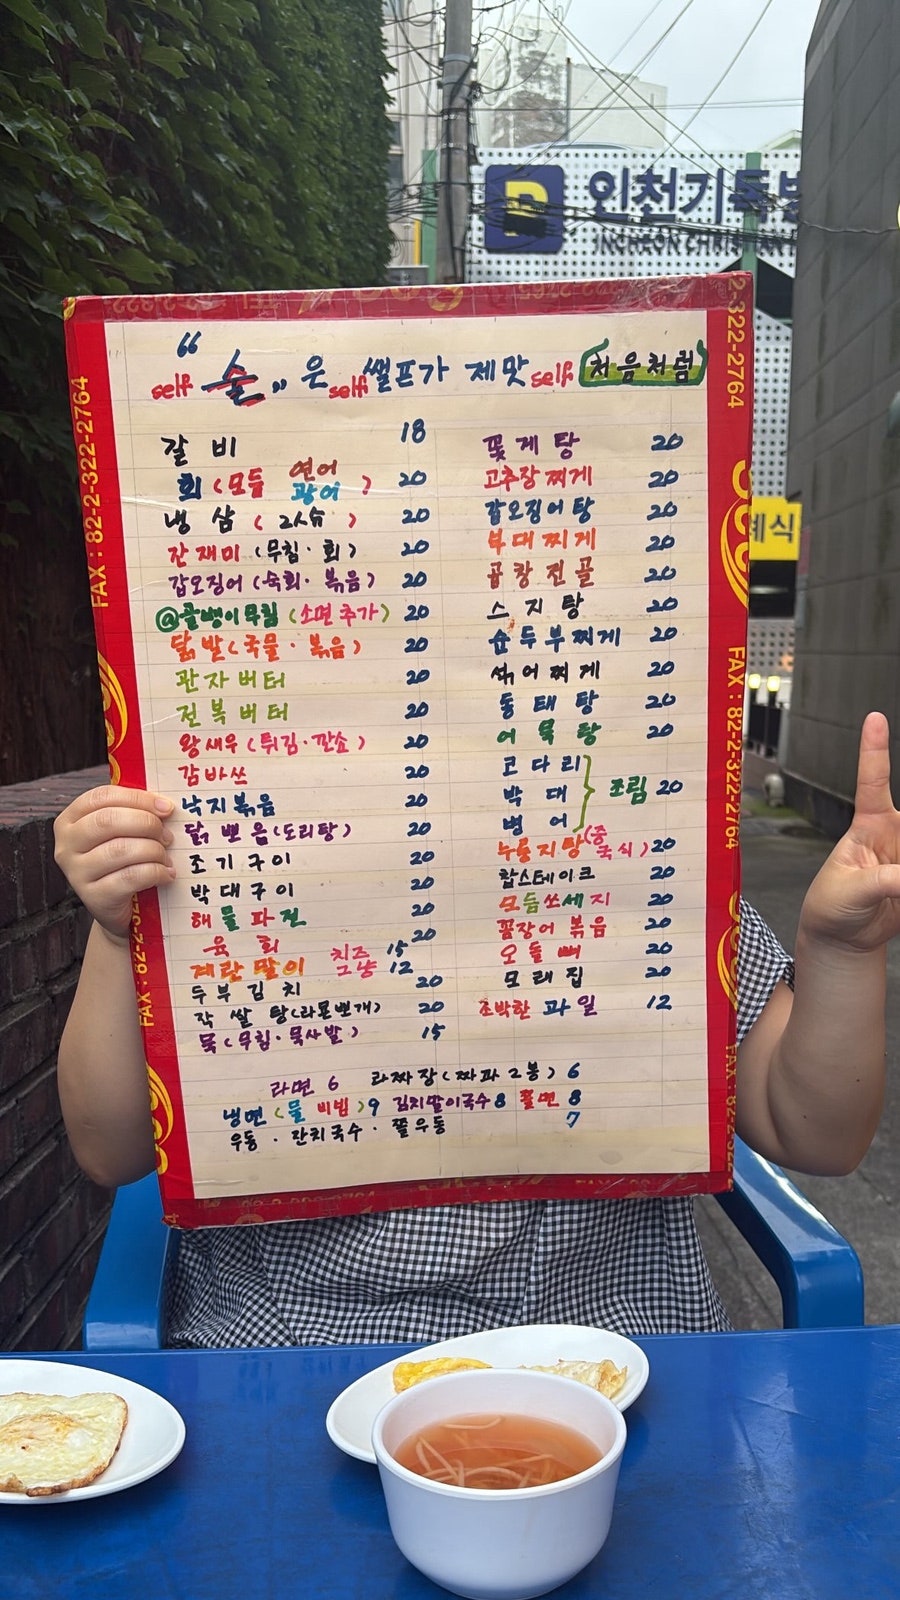 인천기독병
INCHEON CHRISTIAN
예식
FAX : 82-2-322-2764
2-322-2764
FAX : 82-2-322-2764
" self 술 " 은 self 쎌프가 제맛 self 처음처럼
갈비 18
회 (모듬 연어 광어) 20
냉삼 (2人슈) 20
간재미 (무침·회) 20
갑오징어 (숙회·볶음) 20
@골뱅이무침 (소면추가) 20
닭발 (국물·볶음) 20
관자버터 20
전복버터 20
왕새우 (튀김·깐쇼) 20
감바쓰 20
낙지볶음 20
닭뽀음 (도리탕) 20
조기구이 20
박대구이 20
해물파전 20
육회 20
계란말이 치즈 15 그냥 12
두부김치 20
작쌀탕 (라몬뽀개) 20
묵 (무침·묵사발) 15
꽃게탕 20
고추장찌게 20
갑오징어탕 20
부대찌게 20
곱창전골 20
스지탕 20
순두부찌게 20
섞어찌게 20
동태탕 20
어묵탕 20
코다리
박대 } 조림 20
병어
누룽지탕 (중국식) 20
찹스테이크 20
모듬쏘세지 20
꼼장어볶음 20
오돌뼈 20
모래집 20
조박한 과일 12
라면 6 라짜장 (짜파2봉) 6
냉면 (물 비빔) 9 김치말이국수 8 쫄면 8
우동·잔치국수·쫄우동 7